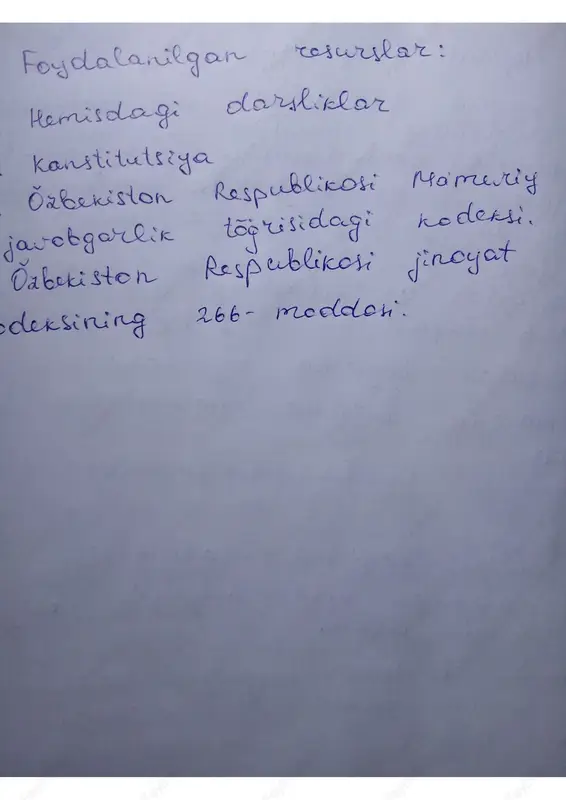 Foydalanilgan resurslar:
Hemisdagi darsliklar
Kanstitutsiya
Õzbekiston Respublikasi Mamuriy
javobgarlik tõgrisidagi kodeksi.
Õzbekiston Respublikasi jinoyat
odeksining 266- moddasi.